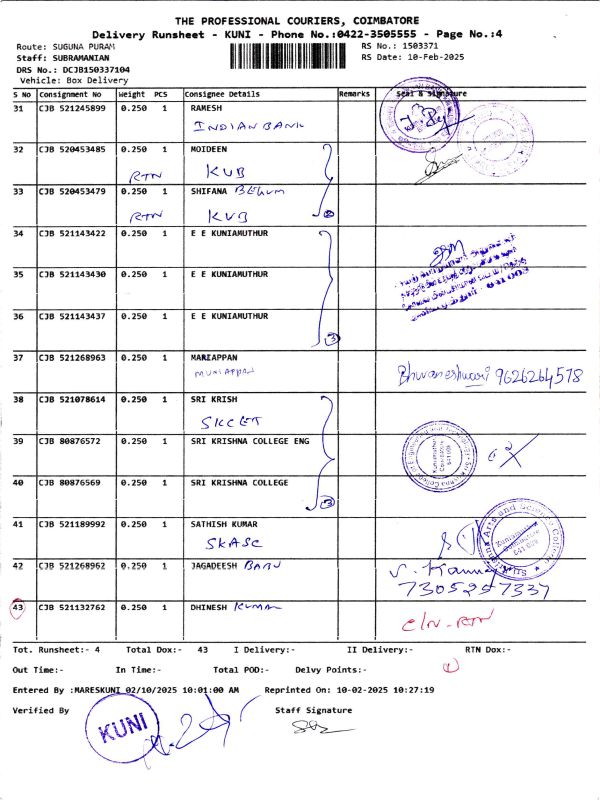 THE PROFESSIONAL COURIERS, COIMBATORE
Delivery Runsheet - KUNI - Phone No.:0422-3505555 - Page No.:4
Route: SUGUNA PURAM
RS No.: 1503371
Staff: SUBRAMANIAN
RS Date: 10-Feb-2025
DRS No.: DCJB150337104
Vehicle: Box Delivery
S No Consignment No Weight PCS Consignee Details Remarks Seal & Signature
31 CJB 521245899 0.250 1 RAMESH
INDIAN BANK
32 CJB 520453485 0.250 1 MOIDEEN
RTN KVB
33 CJB 520453479 0.250 1 SHIFANA BEGUM
RTN KVB
34 CJB 521143422 0.250 1 E E KUNIAMUTHUR
35 CJB 521143430 0.250 1 E E KUNIAMUTHUR
36 CJB 521143437 0.250 1 E E KUNIAMUTHUR
3
37 CJB 521268963 0.250 1 MARIAPPAN
MUNIAPPAN
Bhuvaneshwari 9626264578
38 CJB 521078614 0.250 1 SRI KRISH
SKCET
39 CJB 80876572 0.250 1 SRI KRISHNA COLLEGE ENG
40 CJB 80876569 0.250 1 SRI KRISHNA COLLEGE
3
Kuniamuthur
Coimbatore
641 008
41 CJB 521189992 0.250 1 SATHISH KUMAR
SKASC
Sri Krishna Arts and Science College
Kuniamuthur
Coimbatore
641 008
42 CJB 521268962 0.250 1 JAGADEESH BABU
7305257337
43 CJB 521132762 0.250 1 DHINESH KUMAR
C/N-RTN
Tot. Runsheet:- 4 Total Dox:- 43 I Delivery:- II Delivery:- RTN Dox:-
Out Time:- In Time:- Total POD:- Delvy Points:-
1
Entered By :MARESKUNI 02/10/2025 10:01:00 AM Reprinted On: 10-02-2025 10:27:19
Verified By
Staff Signature
KUNI